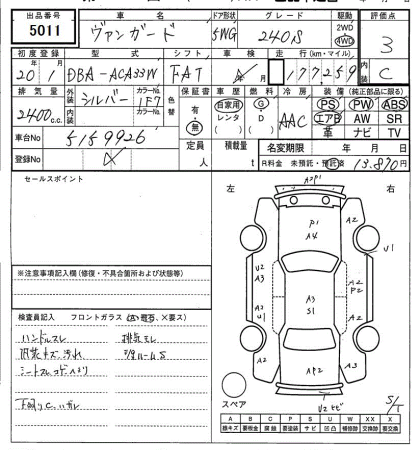 出品番号 車名 ドア形状 グレード 駆動 評価点
5011 ヴァンガード 5WG 240S 2WD 4WD 3
初度登録 型式 シフト 車検 走行(km・マイル) 内装
20 1 年 月 DBA-ACA33W FAT 177259 C
排気量 外装 カラーNo. 色替 保証書 車歴 燃料 冷房 装備(純正部品に限る)
2400 c.c. シルバー 1F7 有・無 自家用 レンタ ( ) G・D ( ) AAC PS PW ABS
内装 カラーNo. エアB AW SR
車台No 5159926 革 ナビ TV
登録No 定員 人 積載量 t 名変期限 年 月 日
R料金 未預託・預託済 13,870円
セールスポイント 左 右
A2P1
P1
A4
A2
U1
U2
A3
A3
U1
A3
S1
A2
P2
A2
A2
AP2
A3
※注意事項記入欄(修復・不具合箇所および状態等)
検査員記入 フロントガラス (凸:飛石、×要ス)
ハンドルスレ
内装キズ、汚れ
下回りC、ハガレ
スペア
T
S/T
A B C P S U W X XX
線キズ 要板金 腐蝕 要塗装 サビ 凹凸 補修跡 交換跡 要交換